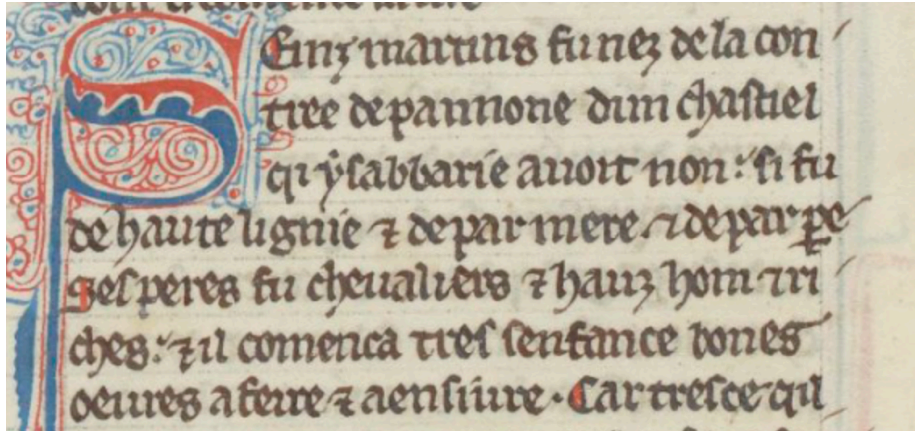 Seinz martins fu nez de la con
tree de pannone dun chastiel
qi ysabbarie auoit non: si fu
de haute lignie ⁊ de par mere ⁊ de par pe
Ses peres fu cheualiers ⁊ hauz hom ⁊ ri
ches: ⁊ il comenca tres senfance bones
oeures a feire ⁊ a ensiure. Car tresce qil